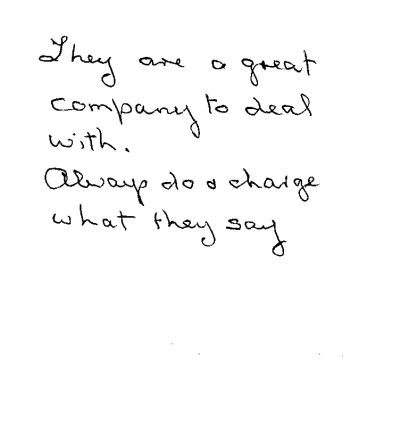 They are a great
company to deal
with.
Always do & charge
what they say